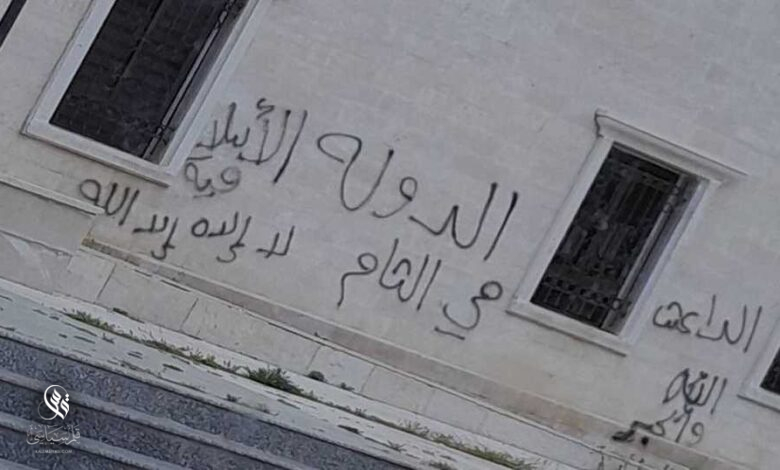 الدولة الأسلا
مية
في الشام
لا إله إلا الله
الداعش
الله
وأكبر